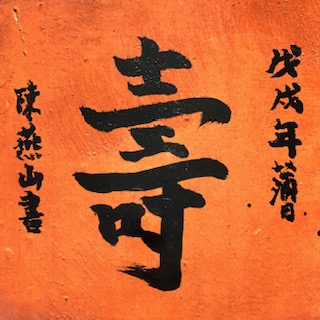 戊戌年
壽
陳燕山書